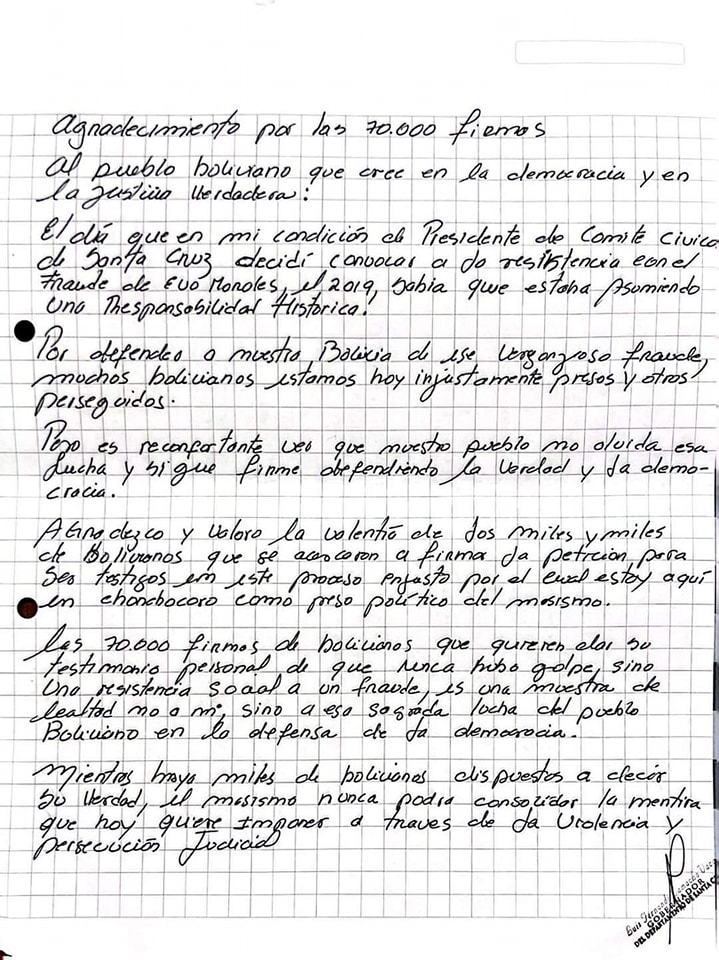 Agradecimiento por las 70.000 firmas
Al pueblo boliviano que cree en la democracia y en
la justicia Verdadera:
El día que en mi condición de Presidente de Comité Cívico
de Santa Cruz decidí convocar a la resistencia con el
fraude de Evo Morales, el 2019, sabia que estaba Asumiendo
Una Responsabilidad Historica.
Por defender a nuestra Bolivia de ese Vergonzoso fraude,
muchos bolivianos estamos hoy injustamente presos y otros
perseguidos.
Pero es reconfortante ver que nuestro pueblo no olvida esa
Lucha y sigue firme defendiendo la Verdad y la demo-
cracia.
Agradezco y Valoro la valentía de los miles y miles
de Bolivianos que se acercaron a firmar la petición para
ser testigos en este proceso injusto por el cual estoy aquí
en chonchocoro como preso político del masismo.
Las 70.000 firmas de bolivianos que quieren dar su
testimonio personal de que nunca hubo golpe, sino
Una resistencia Social a un fraude, es una muestra de
lealtad no a mí, sino a esa sagrada lucha del pueblo
Boliviano en la defensa de la democracia.
Mientras haya miles de bolivianos dispuestos a decir
su Verdad, el masismo nunca podrá consolidar la mentira
que hoy quiere Imponer a traves de la Violencia y
persecución Judicial
Luis Fernando Camacho Vaca
GOBERNADOR
DEL DEPARTAMENTO DE SANTA C